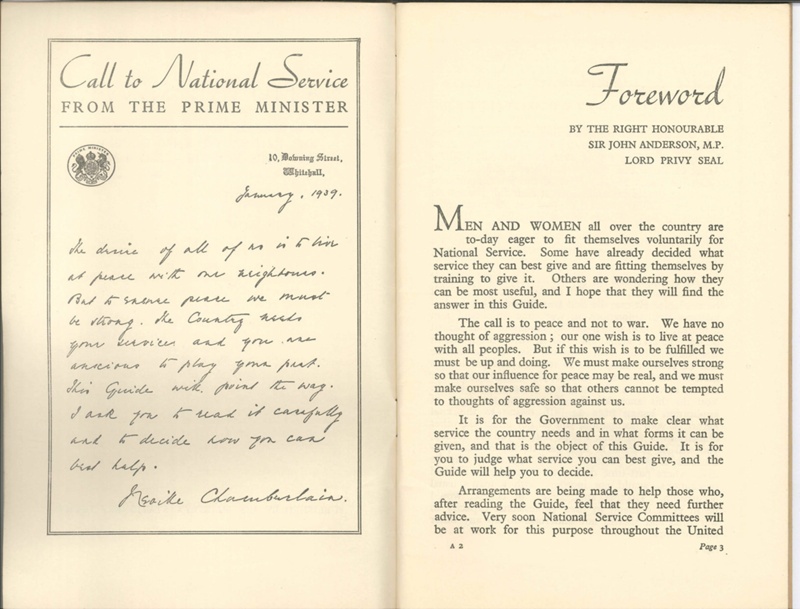 Call to National Service
FROM THE PRIME MINISTER
10, Downing Street,
Whitehall,
January, 1939.
The desire of all of us is to live
at peace with our neighbours.
But to secure peace we must
be strong. The Country needs
your services and you are
anxious to play your part.
This Guide will point the way.
I ask you to read it carefully
and to decide how you can
best help.
Neville Chamberlain.
Foreword
BY THE RIGHT HONOURABLE
SIR JOHN ANDERSON, M.P.
LORD PRIVY SEAL
MEN AND WOMEN all over the country are
to-day eager to fit themselves voluntarily for
National Service. Some have already decided what
service they can best give and are fitting themselves by
training to give it. Others are wondering how they
can be most useful, and I hope that they will find the
answer in this Guide.
The call is to peace and not to war. We have no
thought of aggression ; our one wish is to live at peace
with all peoples. But if this wish is to be fulfilled we
must be up and doing. We must make ourselves strong
so that our influence for peace may be real, and we must
make ourselves safe so that others cannot be tempted
to thoughts of aggression against us.
It is for the Government to make clear what
service the country needs and in what forms it can be
given, and that is the object of this Guide. It is for
you to judge what service you can best give, and the
Guide will help you to decide.
Arrangements are being made to help those who,
after reading the Guide, feel that they need further
advice. Very soon National Service Committees will
be at work for this purpose throughout the United
A 2
Page 3